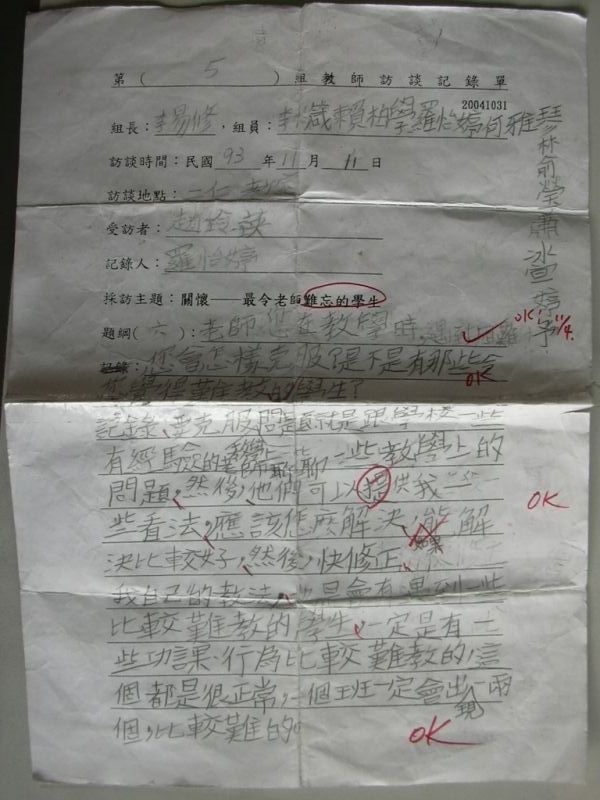 第( 5 )組教師訪談記錄單
20041031
組長:李易修,組員:李 賴柏學羅怡婷何雅琴林俞瑩蕭
訪談時間:民國 93 年 11 月 11 日
訪談地點:一仁
受訪者:趙玲
記錄人:羅怡婷
採訪主題:關懷——最令老師難忘的學生
OK! 11/4.
題綱(六):老師,您在教學時,遇到困難
記錄:您會怎樣克服?是不是有那些令
OK
您覺得難教的學生?
記錄、要克服問題就是跟學校一些
有經驗的老師聊一些教學上的
問題,然後,他們可以提供我一
OK
些看法,應該怎麼解決,能解
如果
決比較好,然後,快修正
我自己的教法,也是會有遇到一些
比較難教的學生,一定是有一
些功課、行為比較難教的,這
個都是很正常,一個班一定會出現一兩
個,比較難的。
OK